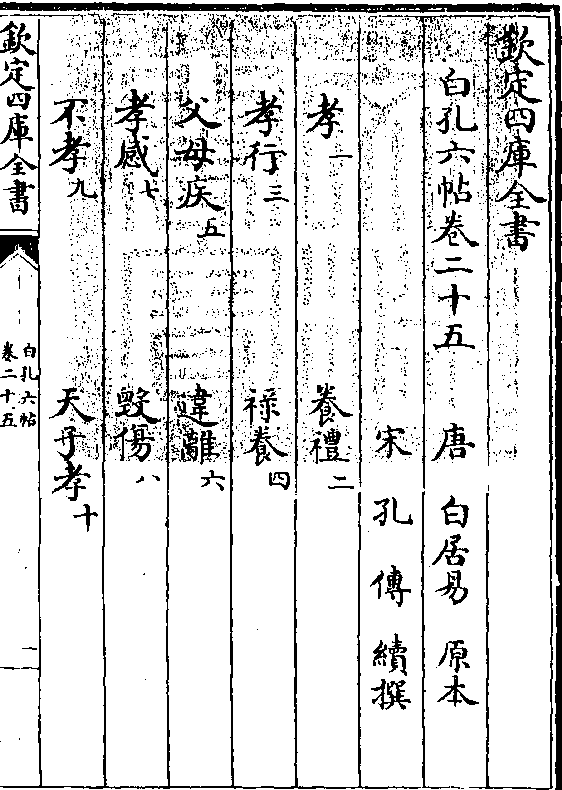 欽定四庫全書
白孔六帖卷二十五　唐　白居易　原本
宋　孔　傳　續撰
孝一　養禮二
孝行三　祿養四
父母疾五　違離六
孝感七　毀傷八
不孝九　天子孝十
欽定四庫全書
白孔六帖
卷二十五
一